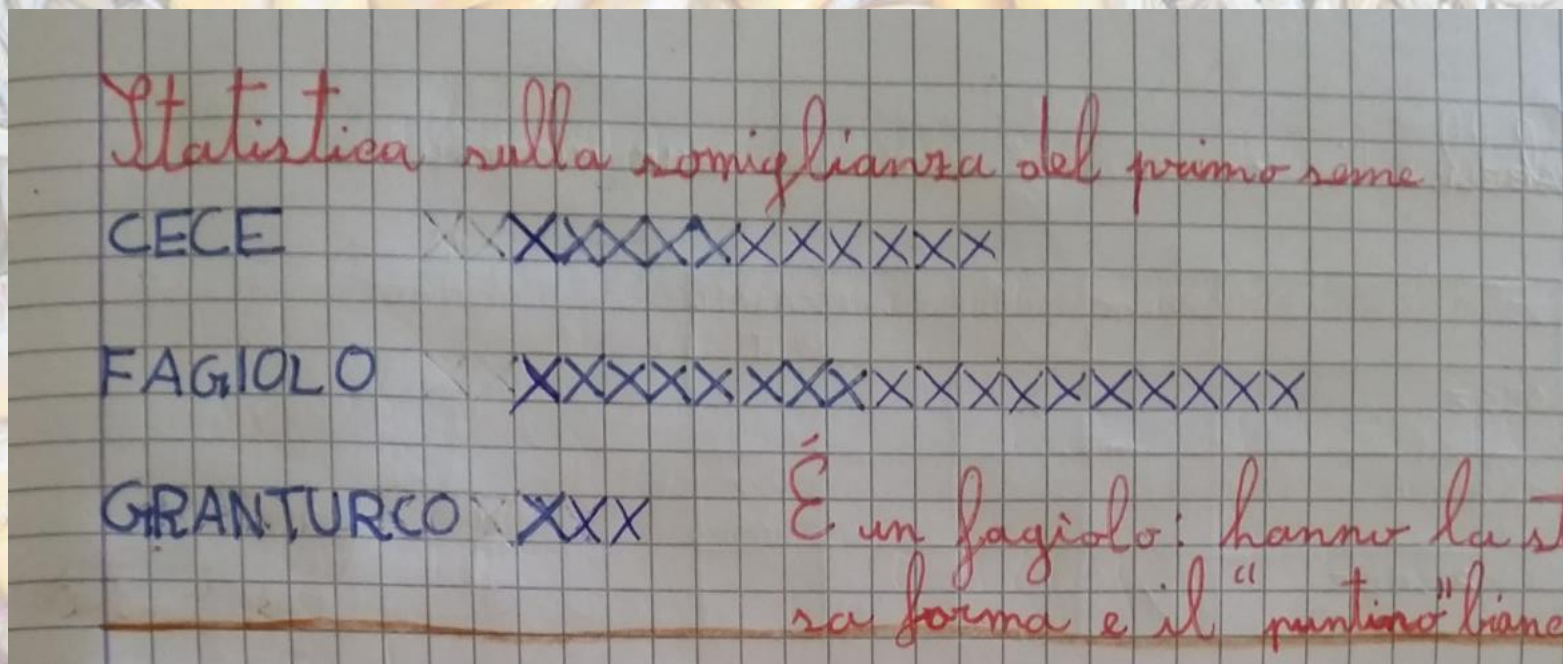 Statistica sulla somiglianza del primo seme
CECE XXXXXXXXXXX
FAGIOLO XXXXXXXXXXXXXXXXXX
GRANTURCO XXX
É un fagiolo: hanno la st
sa forma e il "puntino" bianc